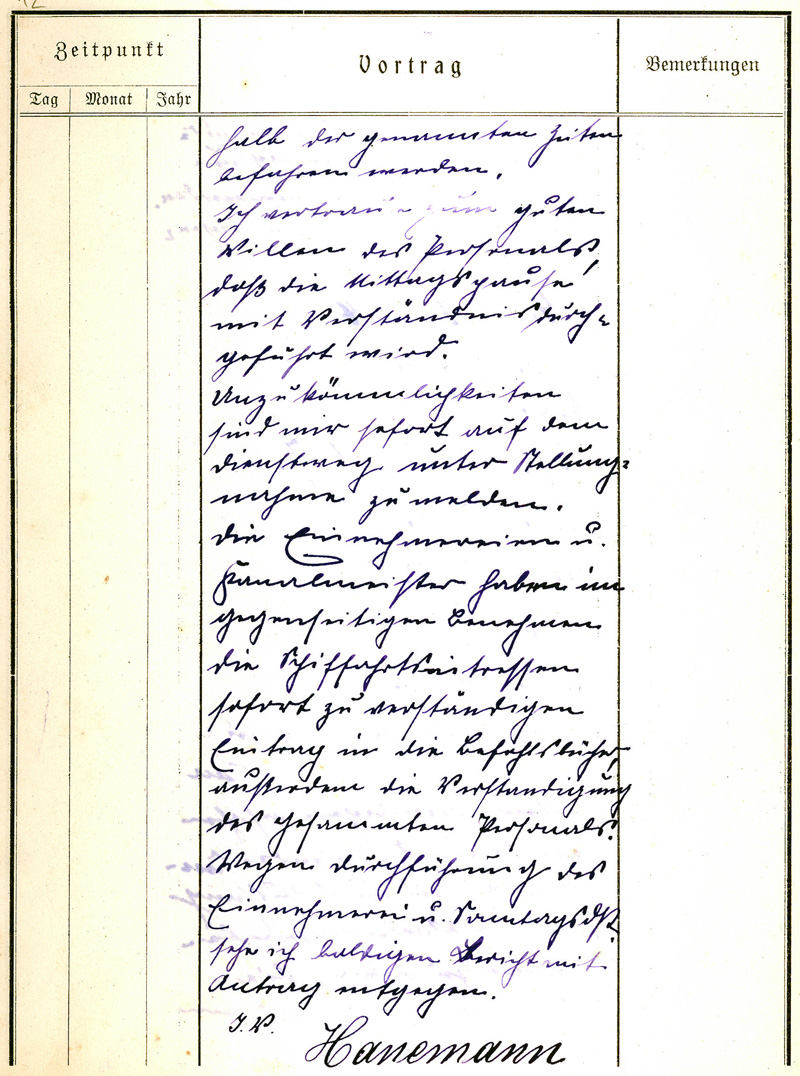 12
Zeitpunkt
Vortrag
Bemerkungen
Tag Monat Jahr
halb der genannten Zeiten
befahren werden.
Ich vertraue zum guten
Willen des Personals,
daß die Mittagspause
mit Verständnis durch-
geführt wird.
Unzukömmlichkeiten
sind mir sofort auf dem
Dienstweg unter Stellung-
nahme zu melden.
Die Einnehmereien u.
Kanalmeister haben im
gegenseitigen Benehmen
die Schiffahrtsintressen
sofort zu verständigen
Eintrag in die Befehlsbücher,
außerdem die Verständigung
des gesammten Personals.
Wegen Durchführung des
Einnehmerei u. Sonntagsdst.
sehe ich baldigen Bericht mit
Antrag entgegen.
I. V.
Hanemann